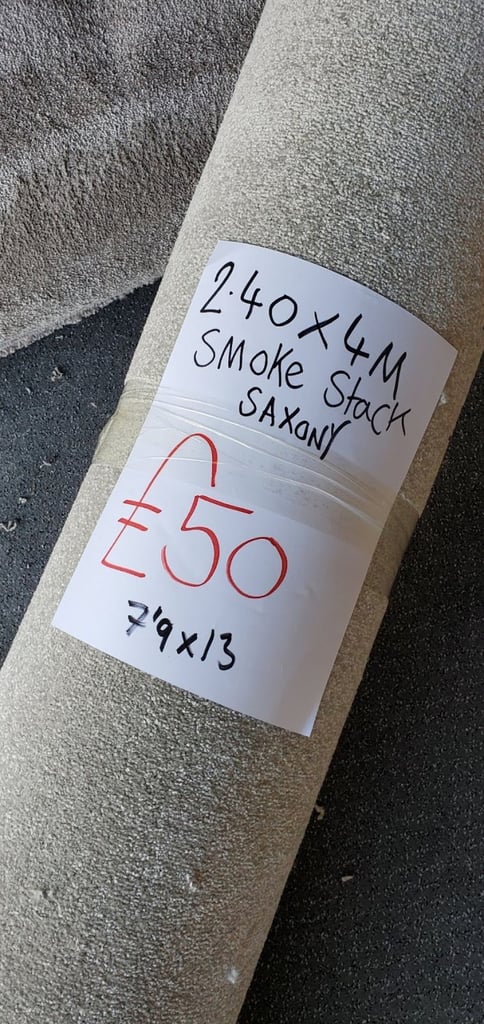 2.40 X 4M
SMOKE Stack
SAXONY
£50
7'9 x 13